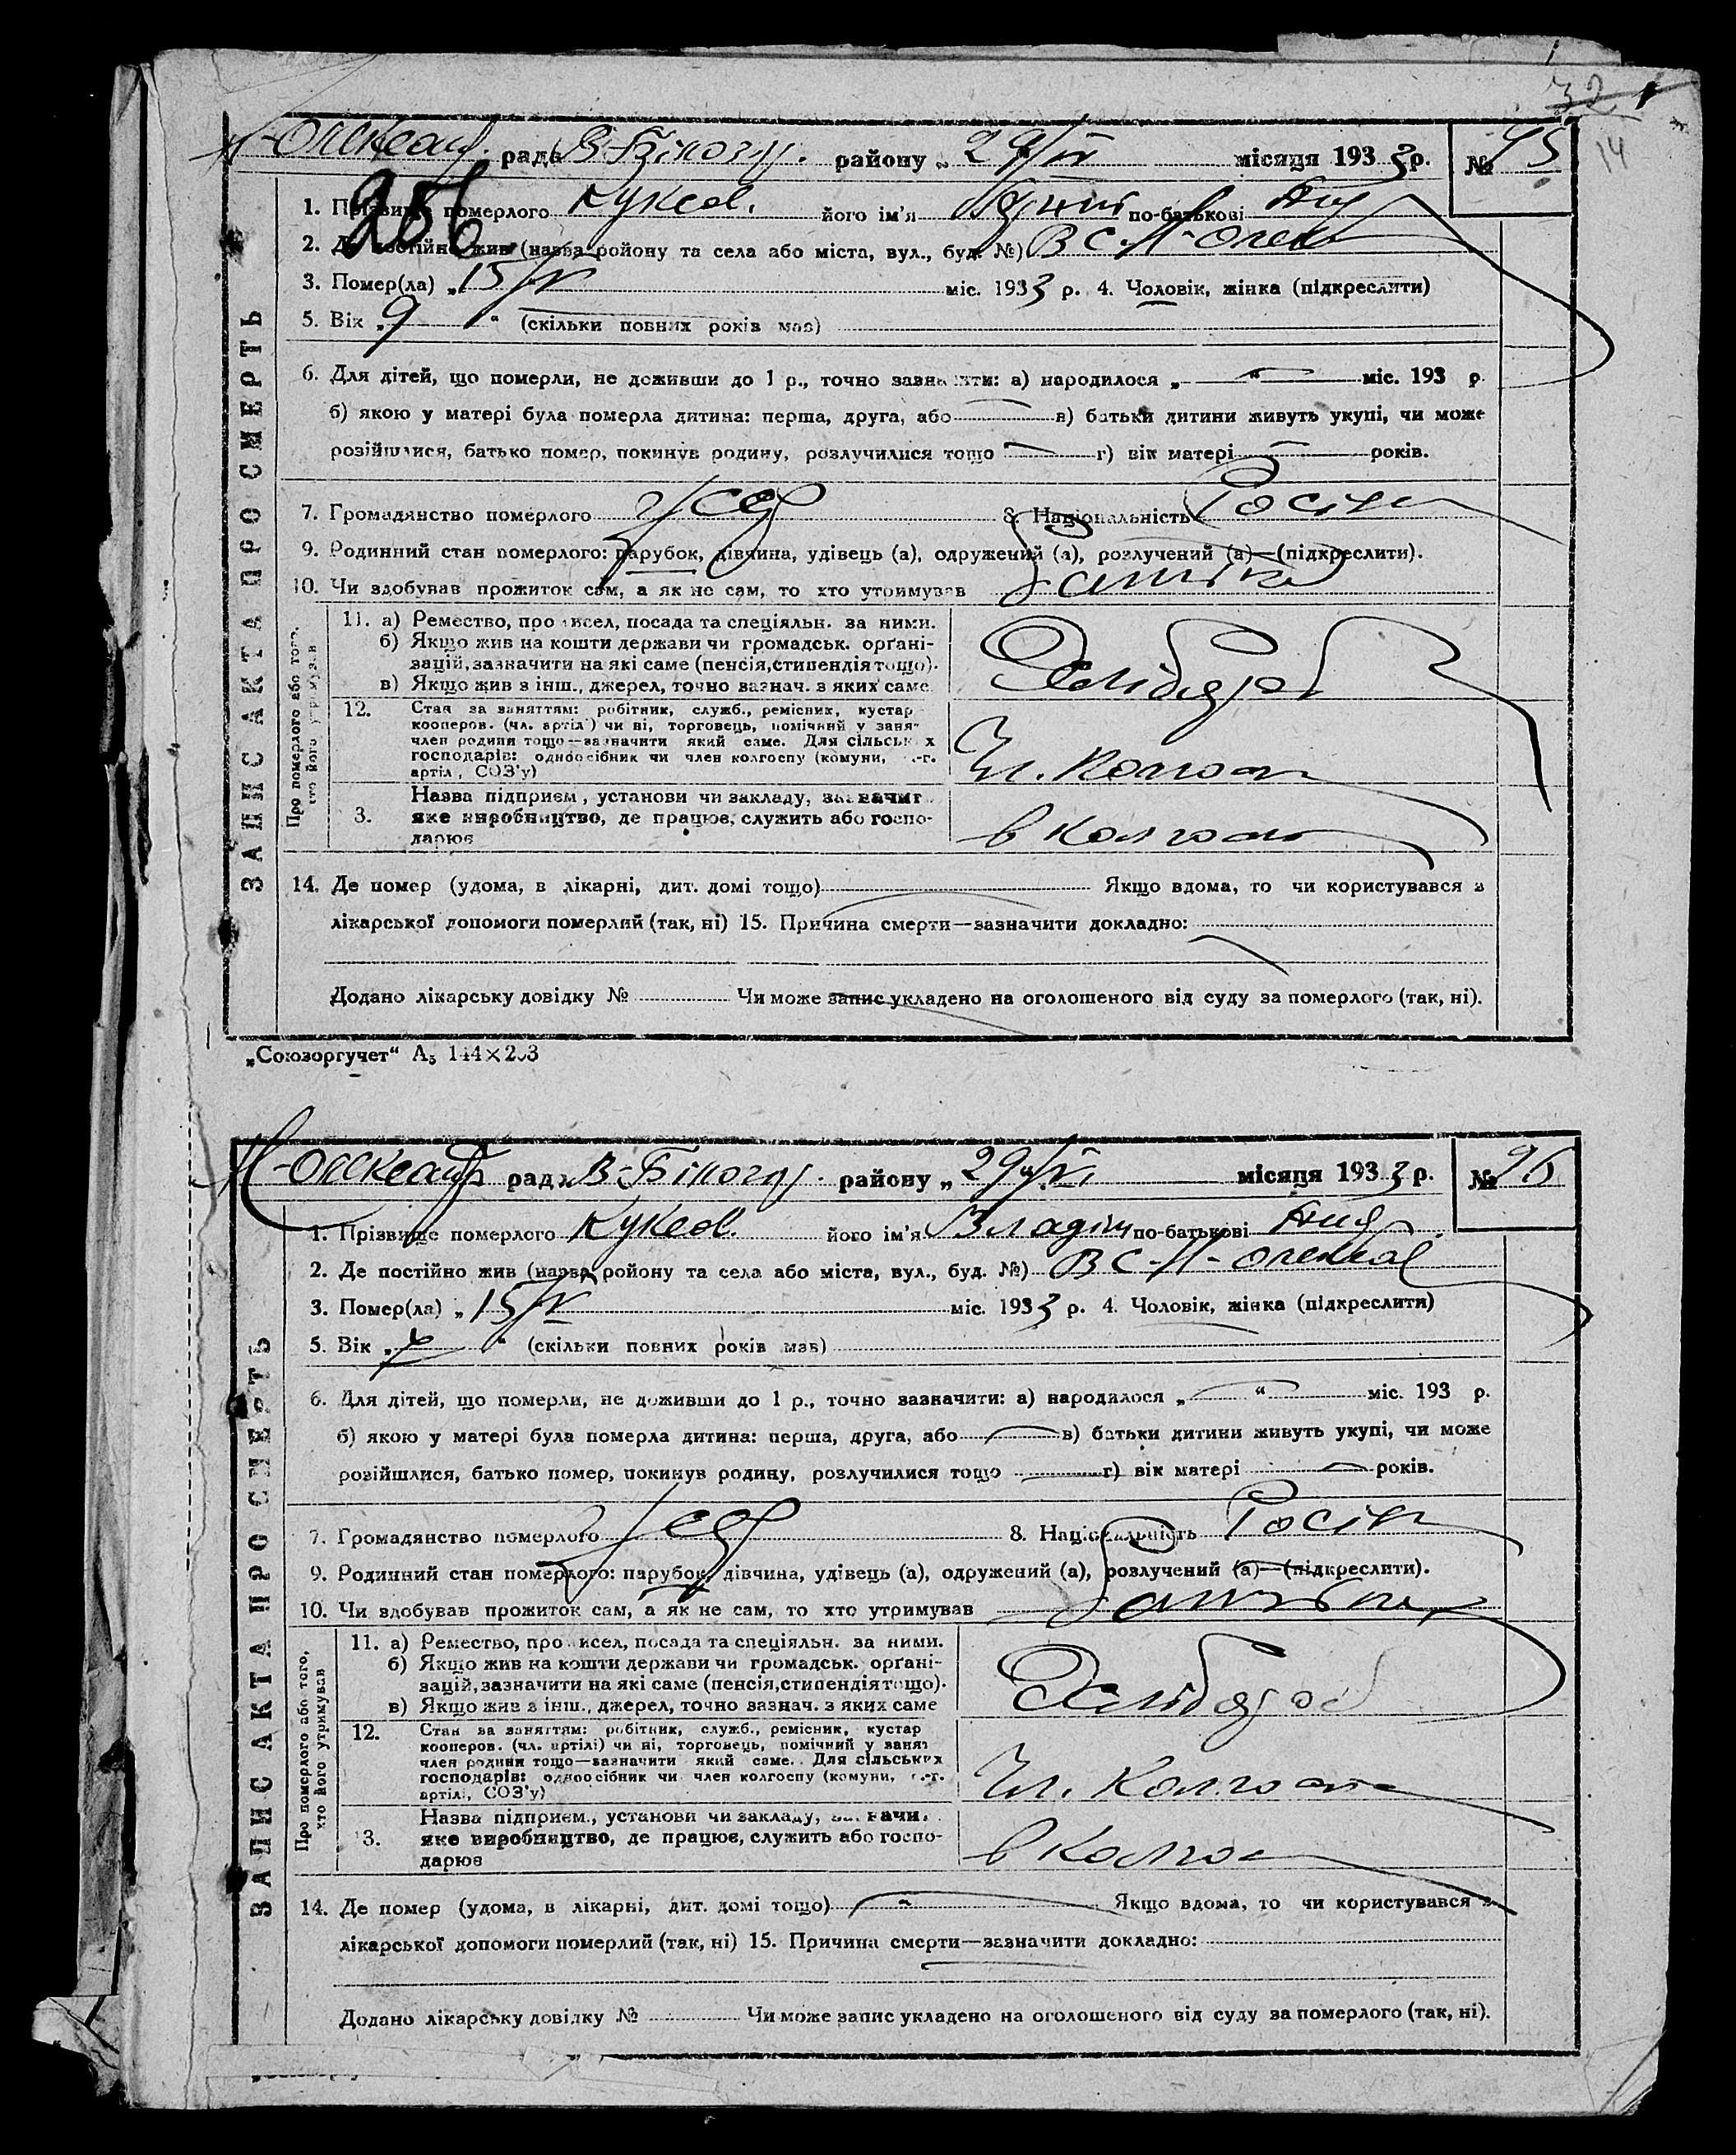 32
14
Н-Олександ. рада В-Білогур. району „29/IV місяця 1933 р. № 95
256
1. Прізвище померлого Кукса. його ім'я по-батькові Анд
2. Де постійно жив (назва ройону та села або міста, вул., буд. №) ВС-Н-Олекс
3. Помер(ла) „15/IV міс. 1933 р. 4. Чоловік, жінка (підкреслити)
5. Вік „9 “ (скільки повних років мав)
6. Для дітей, що померли, не доживши до 1 р., точно зазначити: а) народилося „ “ міс. 193 р.
б) якою у матері була померла дитина: перша, друга, або в) батьки дитини живуть укупі, чи може
розійшлися, батько помер, покинув родину, розлучилися тощо г) вік матері років.
7. Громадянство померлого УССР 8. Національність Росіян
9. Родинний стан померлого: парубок, дівчина, удівець (а), одружений (а), розлучений (а)—(підкреслити).
10. Чи здобував прожиток сам, а як не сам, то хто утримував Батька
ЗАПИС АКТА ПРО СМЕРТЬ
Про померлого або того, хто його утримував
11. а) Ремество, промисел, посада та спеціяльн. за ними.
б) Якщо жив на кошти держави чи громадськ. орґані-
зацій, зазначити на які саме (пенсія, стипендія тощо).
в) Якщо жив з інш., джерел, точно вазнач. з яких саме
Хлібороб
12. Стан за заняттям: робітник, служб., ремісник, кустар
кооперов. (чл. артілі) чи ні, торговець, помічний у заня-
член родини тощо—зазначити який саме. Для сільських
господарів: одноосібник чи член колгоспу (комуни, с.-г.
артіл, СОЗ'у)
Чл. Колгосп
3. Назва підприєм, установи чи закладу, зазначит
яке виробництво, де працює, служить або госпо-
дарює
в колгосп
14. Де помер (удома, в лікарні, дит. домі тощо) Якщо вдома, то чи користувався з
лікарської допомоги померлий (так, ні) 15. Причина смерти—зазначити докладно:
Додано лікарську довідку № Чи може запис укладено на оголошеного від суду за померлого (так, ні).
„Союзоргучет“ А5 144×203
Н-Олександ рада В-Білогур. району „29/IV місяця 1933 р. № 96
1. Прізвище померлого Кукса. його ім'я Владім по-батькові Анд
2. Де постійно жив (назва ройону та села або міста, вул., буд. №) ВС-Н-Олекса
3. Помер(ла) „15/IV міс. 1933 р. 4. Чоловік, жінка (підкреслити)
5. Вік „ “ (скільки повних років мав)
6. Для дітей, що померли, не доживши до 1 р., точно зазначити: а) народилося „ “ міс. 193 р.
б) якою у матері була померла дитина: перша, друга, або в) батьки дитини живуть укупі, чи може
розійшлися, батько помер, покинув родину, розлучилися тощо г) вік матері років.
7. Громадянство померлого УССР 8. Національність Росіян
9. Родинний стан померлого: парубок, дівчина, удівець (а), одружений (а), розлучений (а)—(підкреслити).
10. Чи здобував прожиток сам, а як не сам, то хто утримував Батька
ЗАПИС АКТА ПРО СМЕРТЬ
Про померлого або того, хто його утримував
11. а) Ремество, промисел, посада та спеціяльн. за ними.
б) Якщо жив на кошти держави чи громадськ. орґані-
зацій, зазначити на які саме (пенсія, стипендія тощо).
в) Якщо жив з інш., джерел, точно вазнач. з яких саме
Хлібороб
12. Стан за заняттям: робітник, служб., ремісник, кустар
кооперов. (чл. артілі) чи ні, торговець, помічний у занят
член родини тощо—зазначити який саме. Для сільських
господарів: одноосібник чи член колгоспу (комуни, с.-г.
артілі, СОЗ'у)
Чл. Колгосп
3. Назва підприєм., установи чи закладу, зазначи.
яке виробництво, де працює, служить або госпо-
дарює
в Колгосп
14. Де помер (удома, в лікарні, дит. домі тощо) Якщо вдома, то чи користувався з
лікарської допомоги померлий (так, ні) 15. Причина смерти—зазначити докладно:
Додано лікарську довідку № Чи може запис укладено на оголошеного від суду за померлого (так, ні).